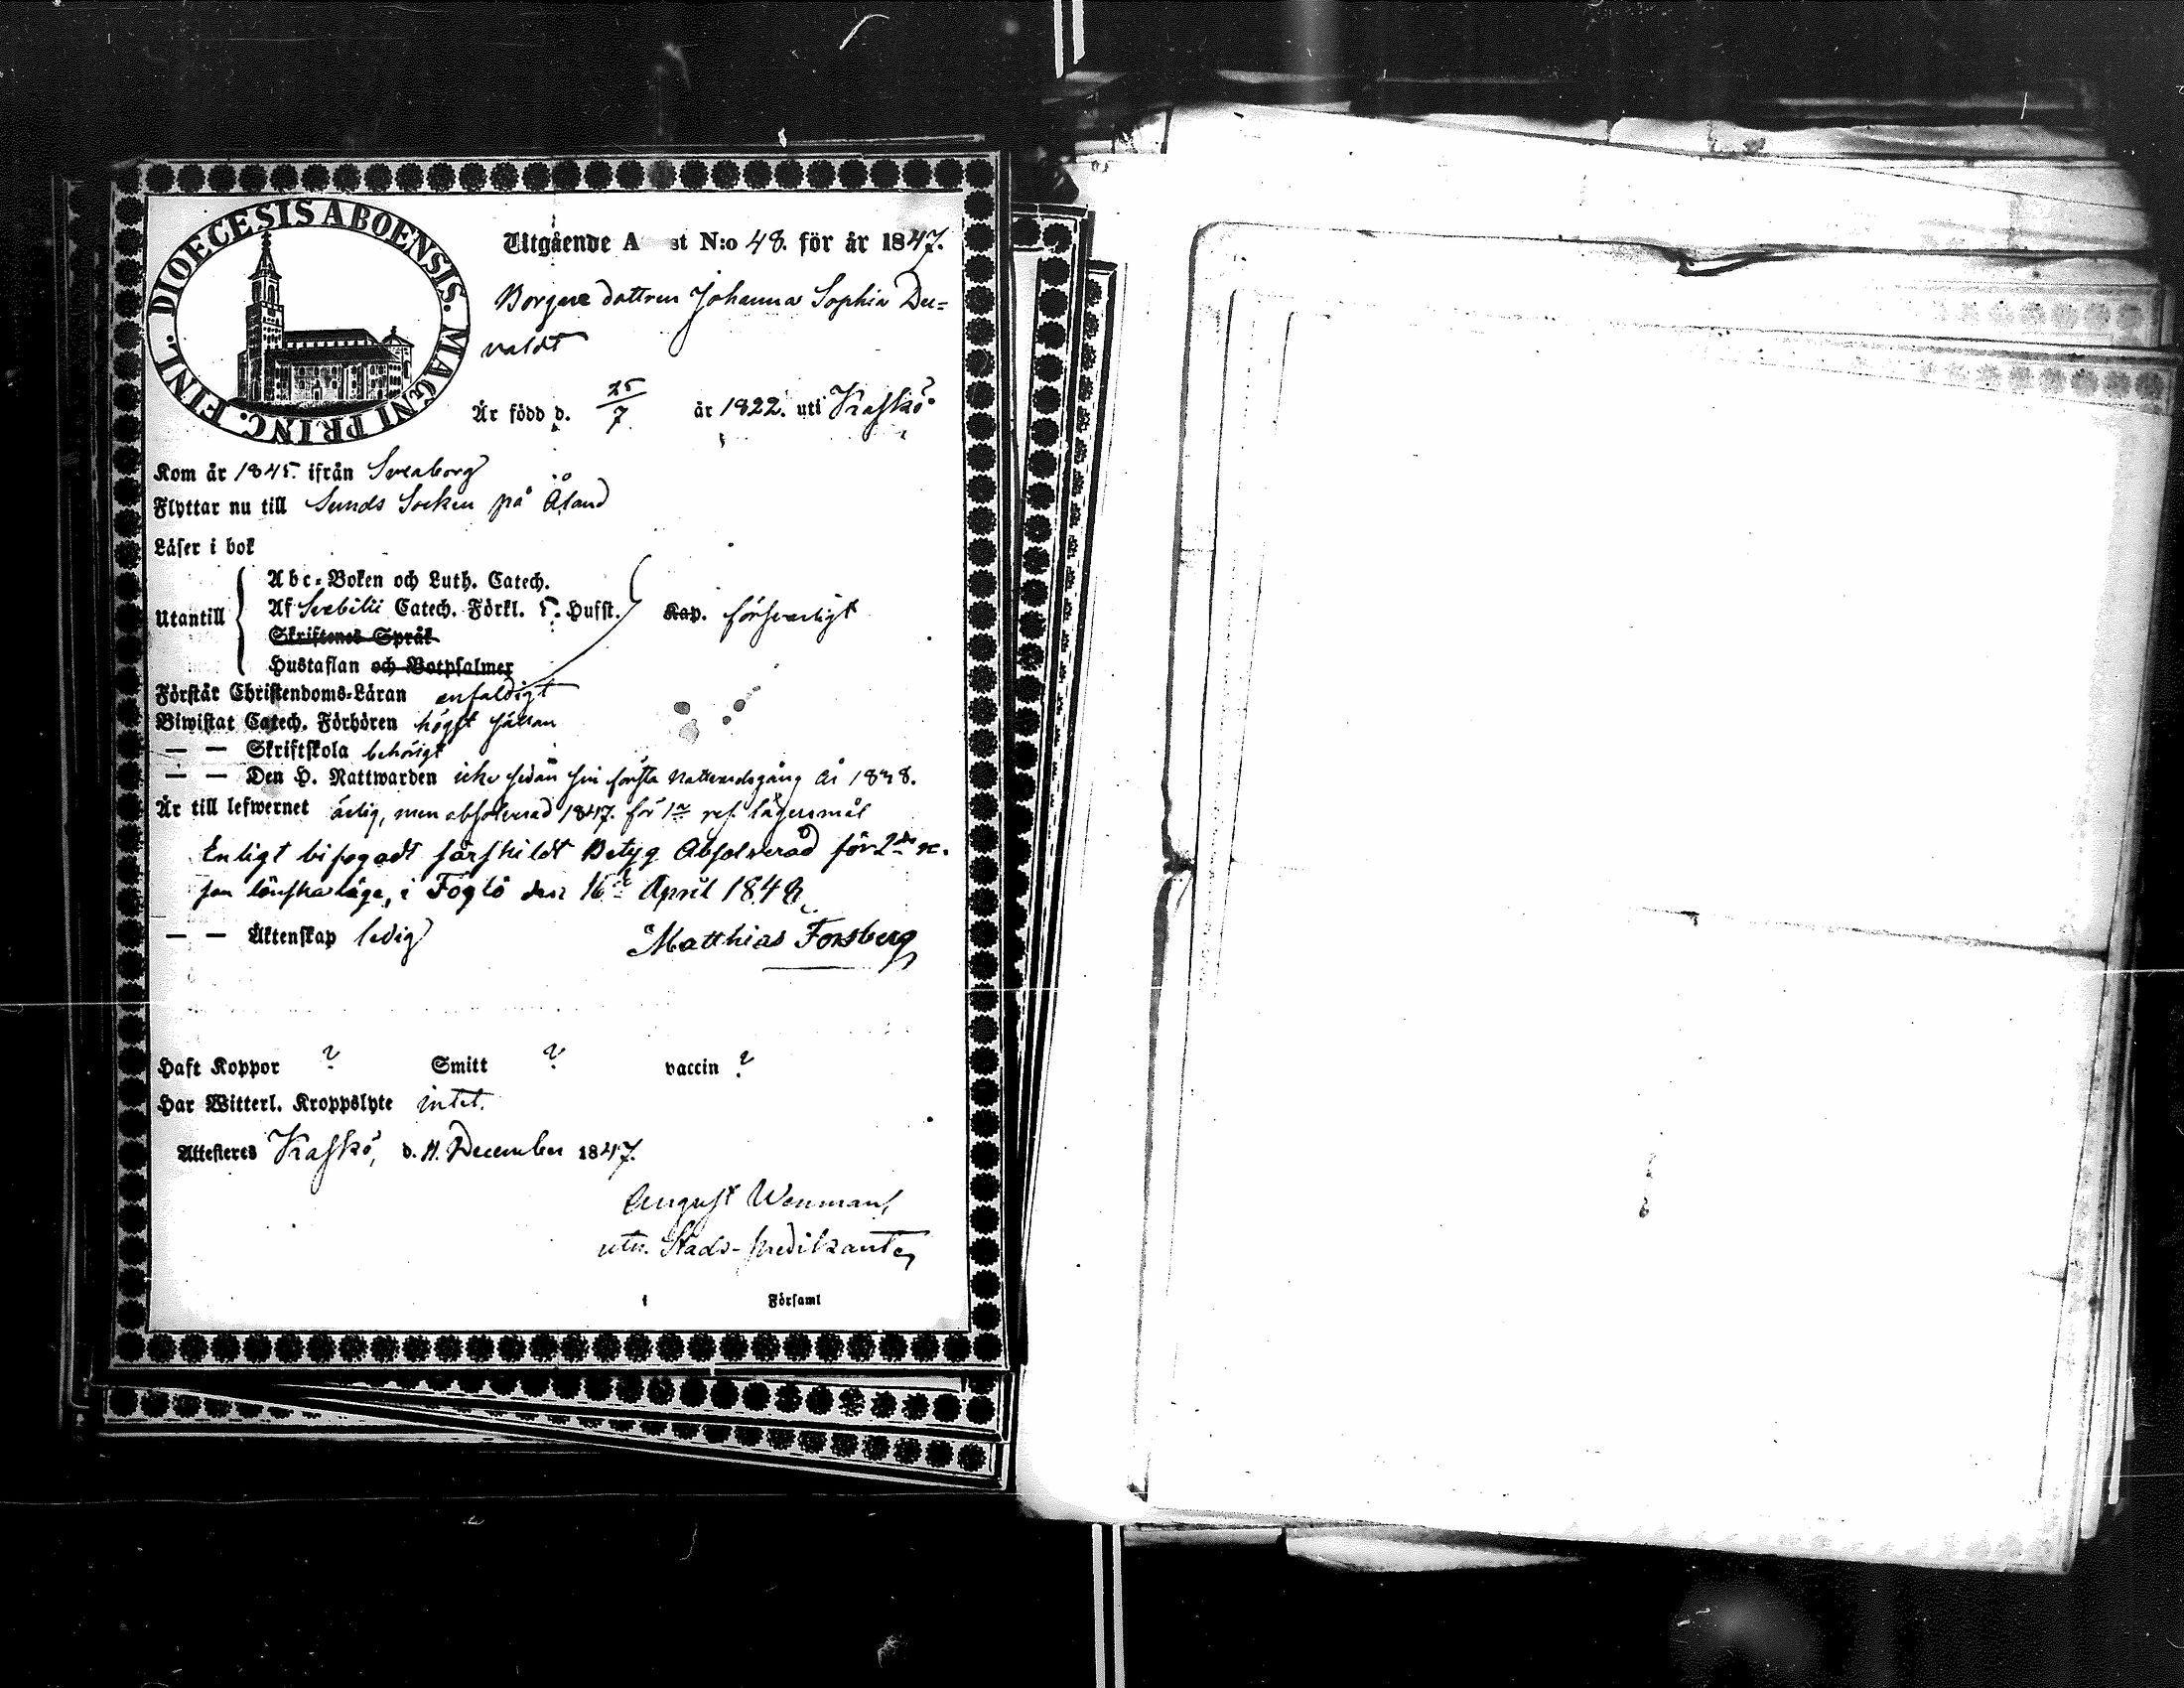 DIOECESIS ABOENSIS. MAGNI PRINC. FINL.
Utgående A st N:o 48. för år 1847.
Borgare dottren Johanna Sophia Du=
valdt
Är född d. 25/7 år 1822. uti Kaskö
Kom år 1845. ifrån Sveaborg
Flyttar nu till Sunds Socken på Åland
Läser i bok
Utantill
Abc-Boken och Luth. Catech.
Af Svebilii Catech. Förkl. 5. Hufst. Kap. försvarligt
Skriftenes Språk
Hustaflan och Botpsalmer
Förstår Christendoms-Läran enfaldigt
Biwistat Catech. Förhören högst sällan
— — Skriftskola behörigt
— — Den H. Nattwarden icke sedan sin första Nattvardsgång år 1838.
Är till lefwernet ärlig, men absolverad 1847. för 1a res. lägersmål
Enligt bifogadt särskildt Betyg Absolverad för 2dra re-
san lönskaläge, i Föglö den 16de April 1848
— — Äktenskap ledig Matthias Forsberg
Haft Koppor ? Smitt ? vaccin ?
Har Witterl. Kroppslyte intet.
Attesteres Kaskö, d. 11. December 1847.
August Wenman
utn. Stads-predikant
i Församl